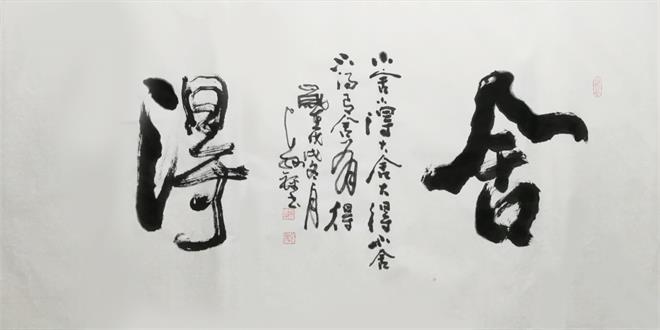 舍
小舍小得大舍大得不舍
不得有舍有得
歲戊戌月
書
得